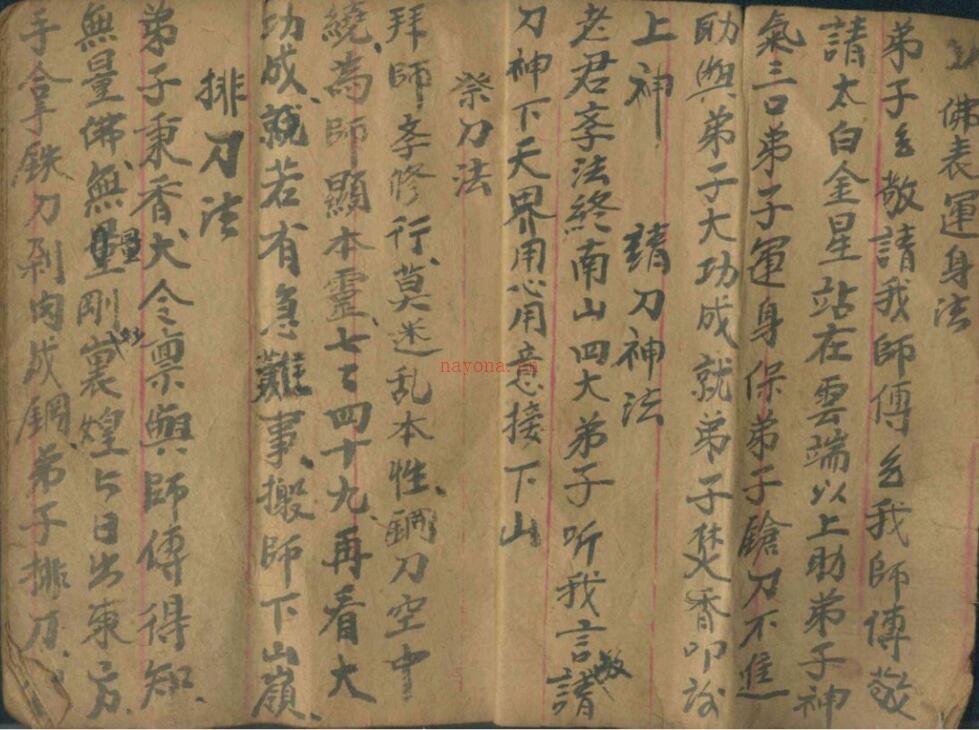 佛表運身法
弟子玄敬請我師傅玄我師傅敬
請太白金星站在雲端以上助弟子神
氣三口弟子運身保弟子鎗刀不進
助與弟子大功成就弟子焚香叩
上神
請刀神法
老君李法終南山四大弟子听我言敬請
刀神下天界用心用意接下山
祭刀法
拜師李修行莫迷乱本性鋼刀空中
繞為師顯本靈七七四十九再看大
功成就若有急難事搬師下山嶺
排刀法
弟子秉香火令禀與師傅得知
無量佛無量剛裏煌与日出東方
手拿鉄刀剁肉成鋼弟子排刀
nayona.cn